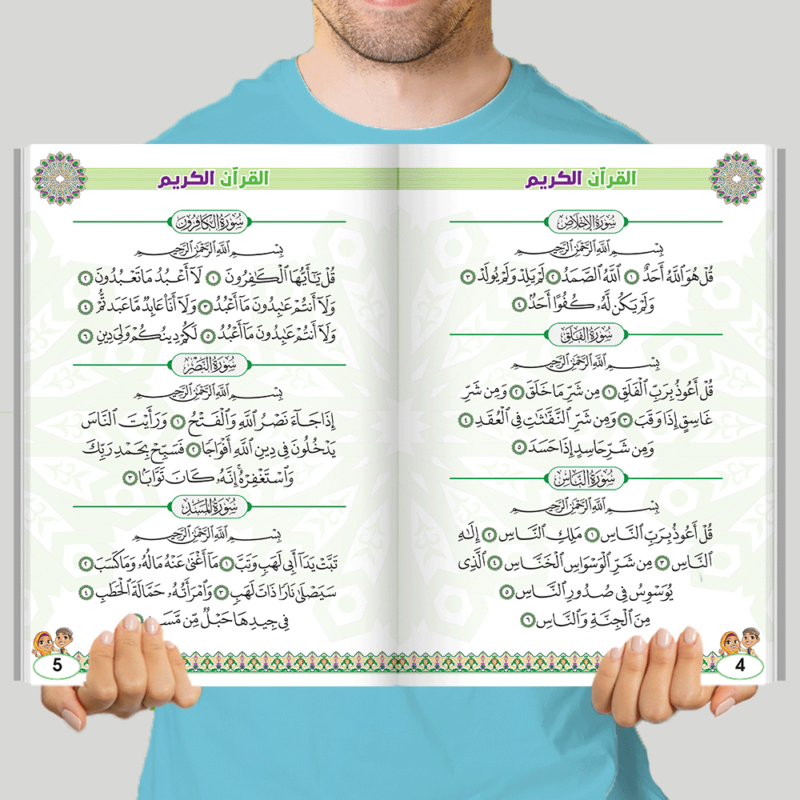 القرآن الكريم
سُورَةُ الإِخْلَاصِ
بِسْمِ اللَّهِ الرَّحْمَٰنِ الرَّحِيمِ
قُلْ هُوَ اللَّهُ أَحَدٌ ١ اللَّهُ الصَّمَدُ ٢ لَمْ يَلِدْ وَلَمْ يُولَدْ ٣
وَلَمْ يَكُن لَّهُۥ كُفُوًا أَحَدٌ ٤
سُورَةُ الفَلَقِ
بِسْمِ اللَّهِ الرَّحْمَٰنِ الرَّحِيمِ
قُلْ أَعُوذُ بِرَبِّ الْفَلَقِ ١ مِن شَرِّ مَا خَلَقَ ٢ وَمِن شَرِّ
غَاسِقٍ إِذَا وَقَبَ ٣ وَمِن شَرِّ النَّفَّٰثَٰتِ فِي الْعُقَدِ ٤
وَمِن شَرِّ حَاسِدٍ إِذَا حَسَدَ ٥
سُورَةُ النَّاسِ
بِسْمِ اللَّهِ الرَّحْمَٰنِ الرَّحِيمِ
قُلْ أَعُوذُ بِرَبِّ النَّاسِ ١ مَلِكِ النَّاسِ ٢ إِلَٰهِ
النَّاسِ ٣ مِن شَرِّ الْوَسْوَاسِ الْخَنَّاسِ ٤ الَّذِي
يُوَسْوِسُ فِي صُدُورِ النَّاسِ ٥
مِنَ الْجِنَّةِ وَالنَّاسِ ٦
4
القرآن الكريم
سُورَةُ الكَافِرُونَ
بِسْمِ اللَّهِ الرَّحْمَٰنِ الرَّحِيمِ
قُلْ يَٰٓأَيُّهَا الْكَٰفِرُونَ ١ لَآ أَعْبُدُ مَا تَعْبُدُونَ ٢
وَلَآ أَنتُمْ عَٰبِدُونَ مَآ أَعْبُدُ ٣ وَلَآ أَنَا۠ عَابِدٌ مَّا عَبَدتُّمْ ٤
وَلَآ أَنتُمْ عَٰبِدُونَ مَآ أَعْبُدُ ٥ لَكُمْ دِينُكُمْ وَلِيَ دِينِ ٦
سُورَةُ النَّصْرِ
بِسْمِ اللَّهِ الرَّحْمَٰنِ الرَّحِيمِ
إِذَا جَآءَ نَصْرُ اللَّهِ وَالْفَتْحُ ١ وَرَأَيْتَ النَّاسَ
يَدْخُلُونَ فِي دِينِ اللَّهِ أَفْوَاجًا ٢ فَسَبِّحْ بِحَمْدِ رَبِّكَ
وَاسْتَغْفِرْهُ إِنَّهُۥ كَانَ تَوَّابًۢا ٣
سُورَةُ المَسَدِ
بِسْمِ اللَّهِ الرَّحْمَٰنِ الرَّحِيمِ
تَبَّتْ يَدَآ أَبِي لَهَبٍ وَتَبَّ ١ مَآ أَغْنَىٰ عَنْهُ مَالُهُۥ وَمَا كَسَبَ ٢
سَيَصْلَىٰ نَارًا ذَاتَ لَهَبٍ ٣ وَامْرَأَتُهُۥ حَمَّالَةَ الْحَطَبِ ٤
فِي جِيدِهَا حَبْلٌ مِّن
5